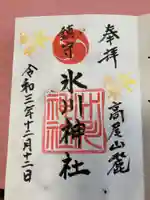 奉拝
高尾山麓
鎮守
氷川神社
令和三年十二月十二日